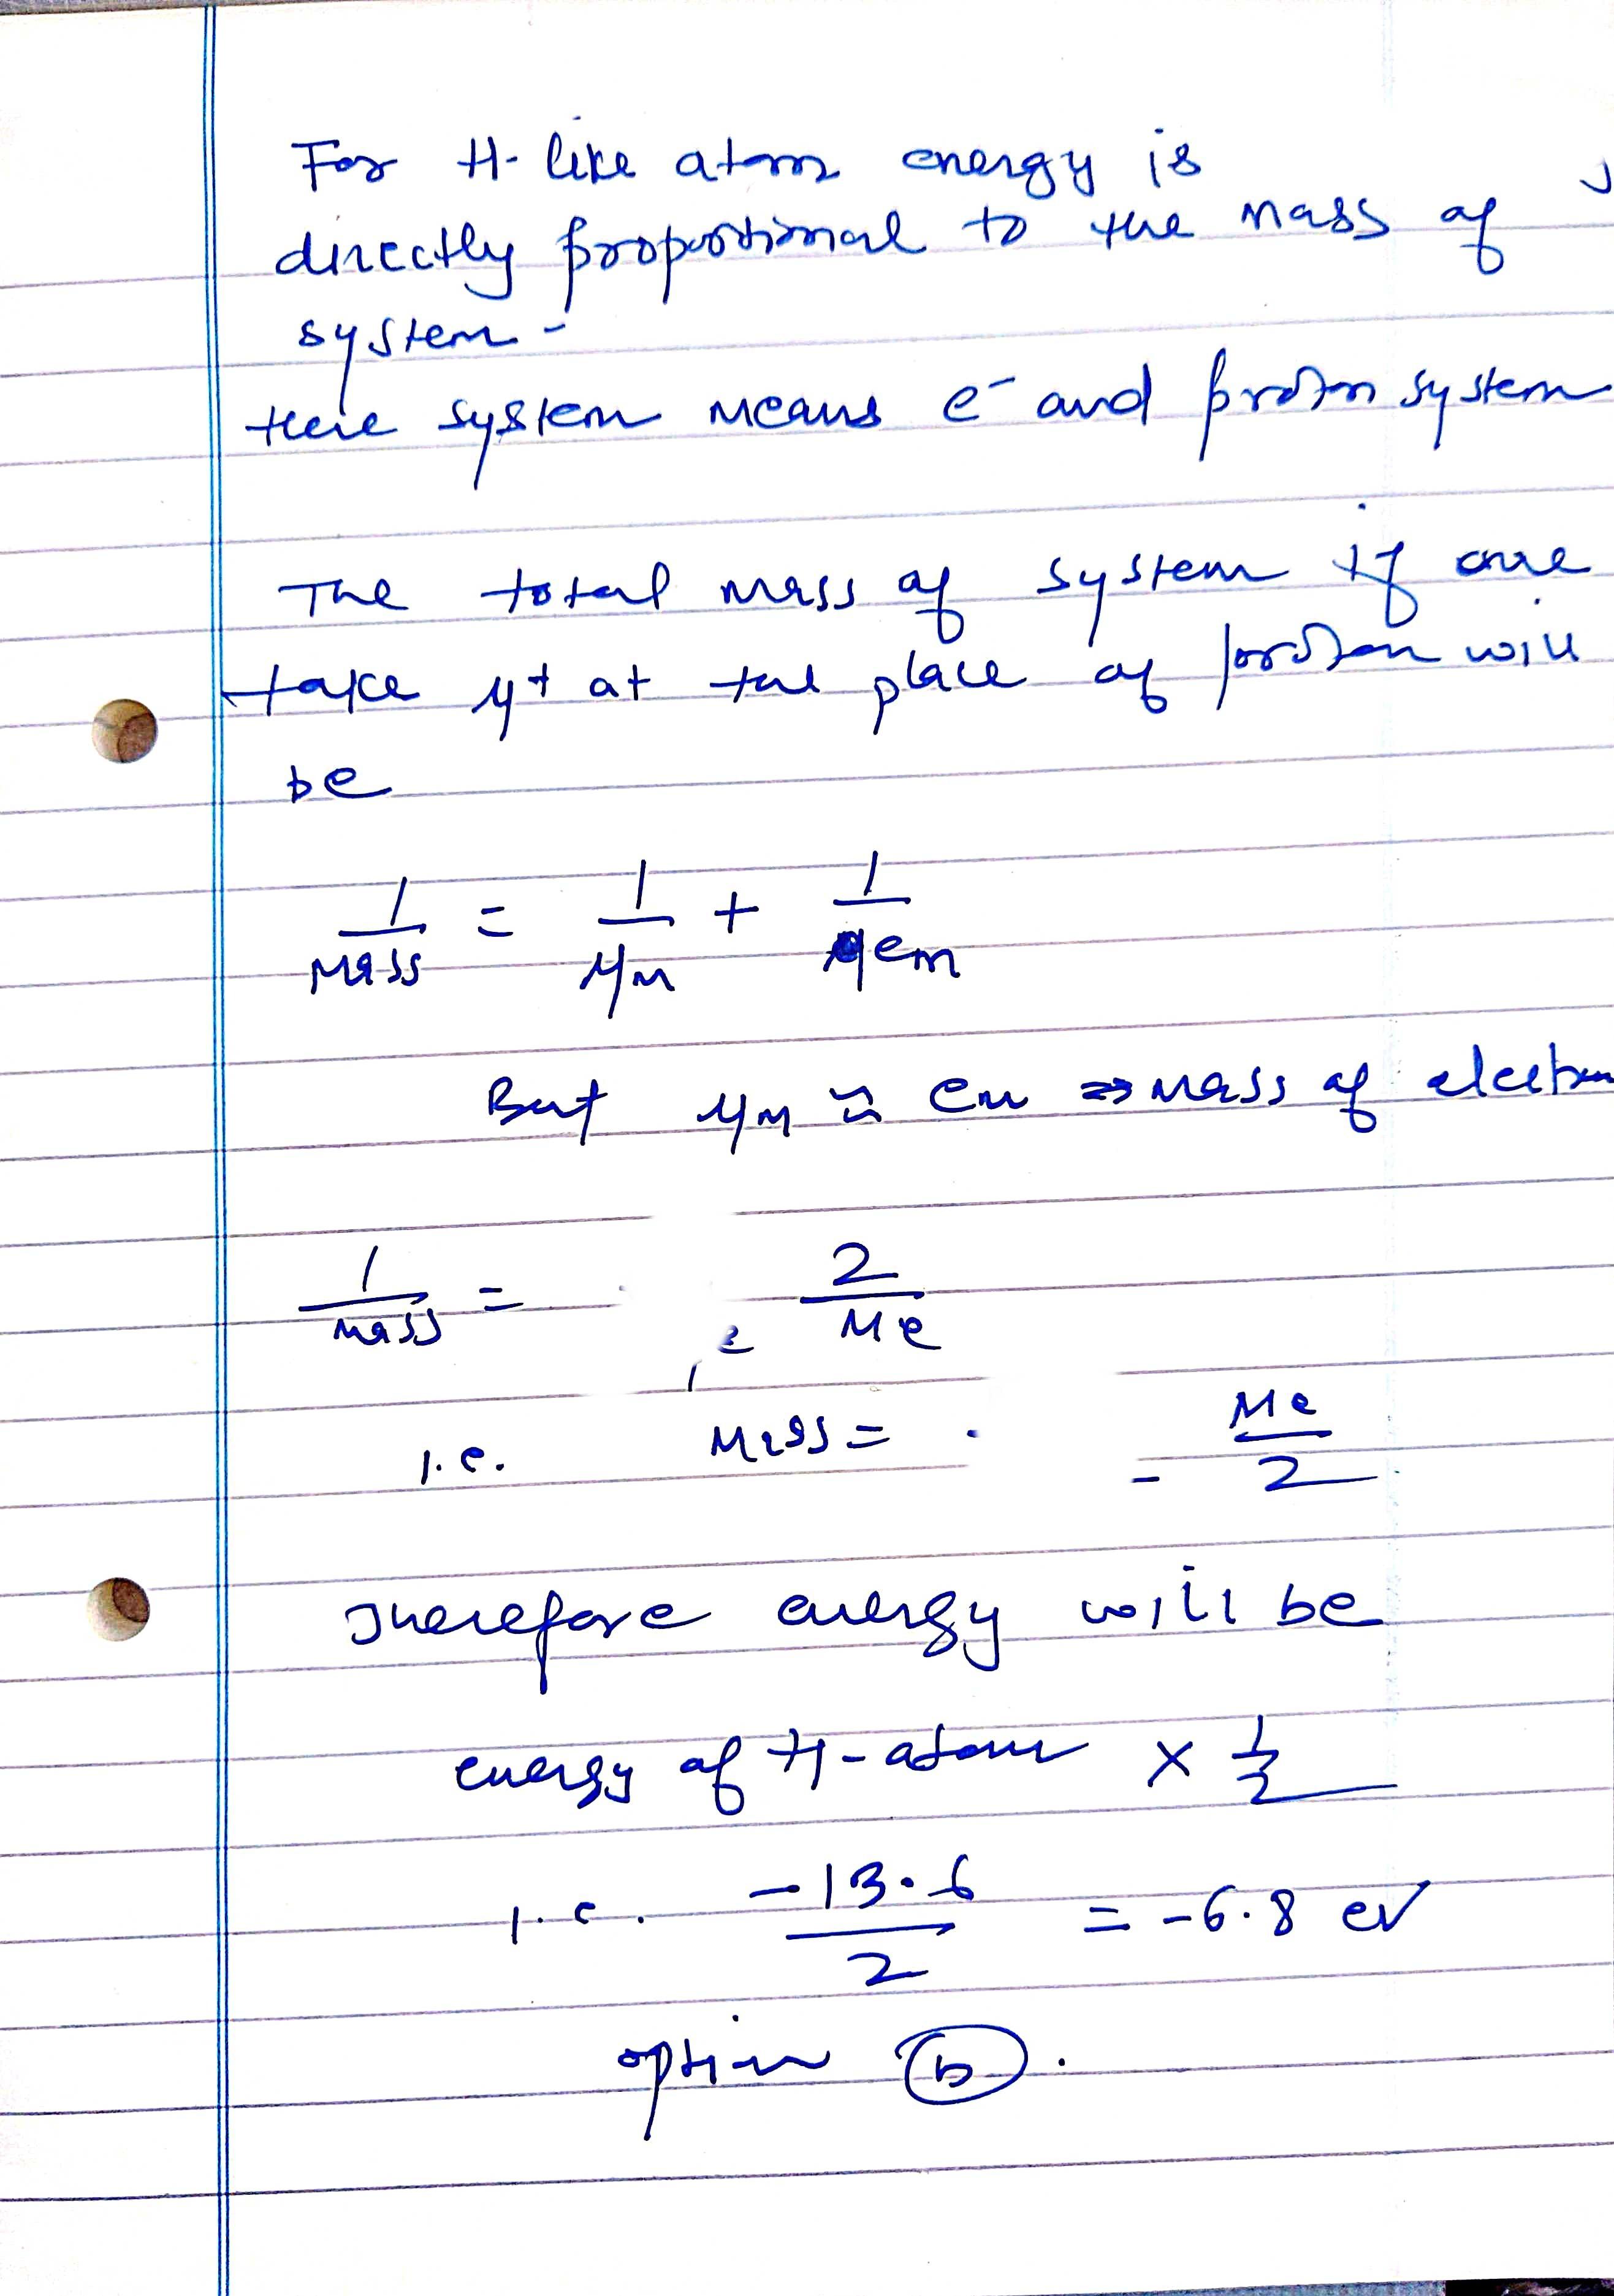 For H-like atom energy is
directly proportional to the mass of
system-
Here system means e⁻ and proton system
The total mass of system if one
take μ+ at the place of proton will
be
1/Mass = 1/μm + 1/em
But μm ≈ em => mass of electron
1/mass = = 2/Me
i.e. Mass = - Me/2
Therefore energy will be
energy of H-atom × 1/2
i.e. -13.6/2 = -6.8 ev
option (b).